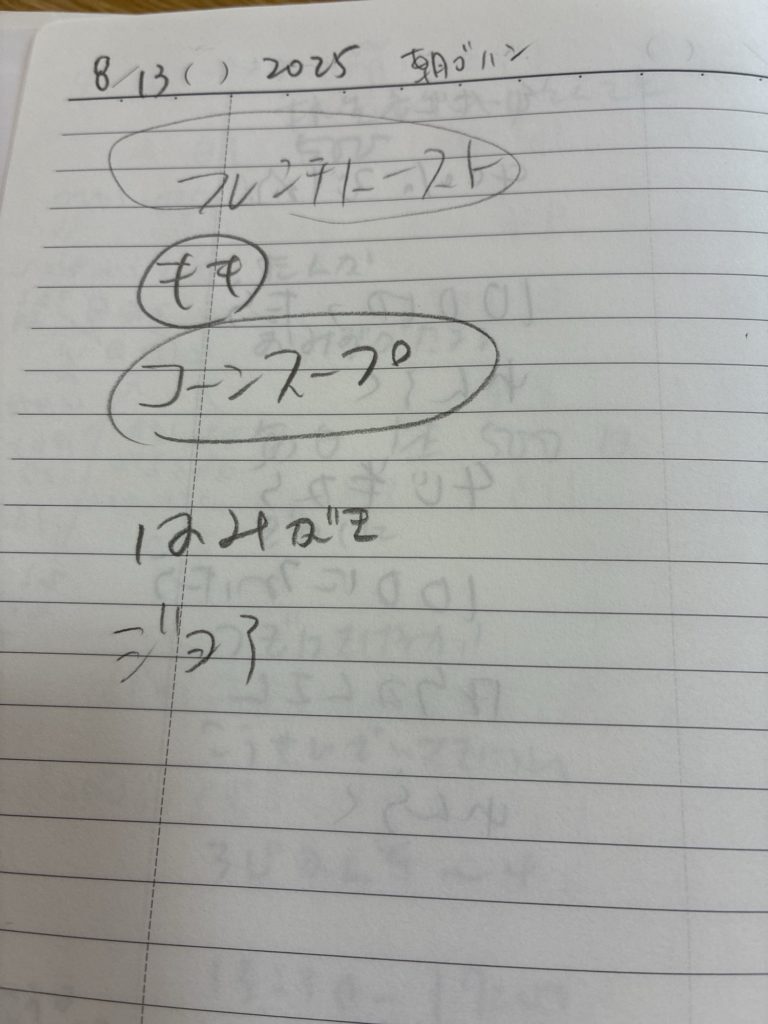 8/13( ) 2025 朝ゴハン
フレンチトースト
モモ
コーンスープ
はみがき
ジョア